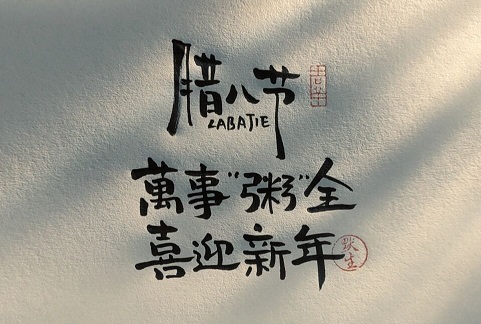 腊八节
LABAJIE
萬事“粥”全
喜迎新年